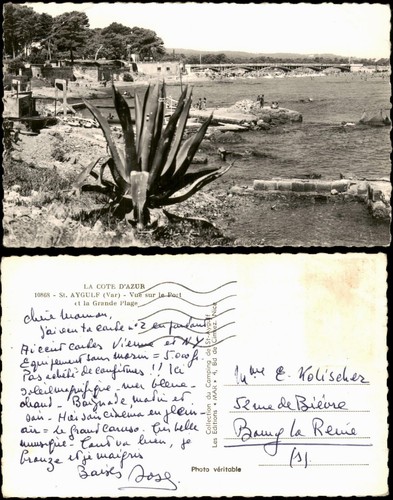 LA COTE D'AZUR
10868 - St. AYGULF (Var) - Vue sur le Port
et la Grande Plage
Chère Maman,
J'ai eu ta carte n°2
Ai écrit cartes Vienne et N.Y
Equipement sans
Pas acheté de !! Ici
soleil magnifique, mer
chaud. Baignade matin et
soir. Hier soir cinéma en plein
air = le grand Caruso. Très belle
musique. Tout va bien, je
bronze et je maigris
Baisers
Collection du Camping de St-Aygulf
Les Editions "MAR", Bd du Cannet, Nice
Mme E. Kolischer
rue de Bièvre
Bourg la Reine
(S)
Photo véritable